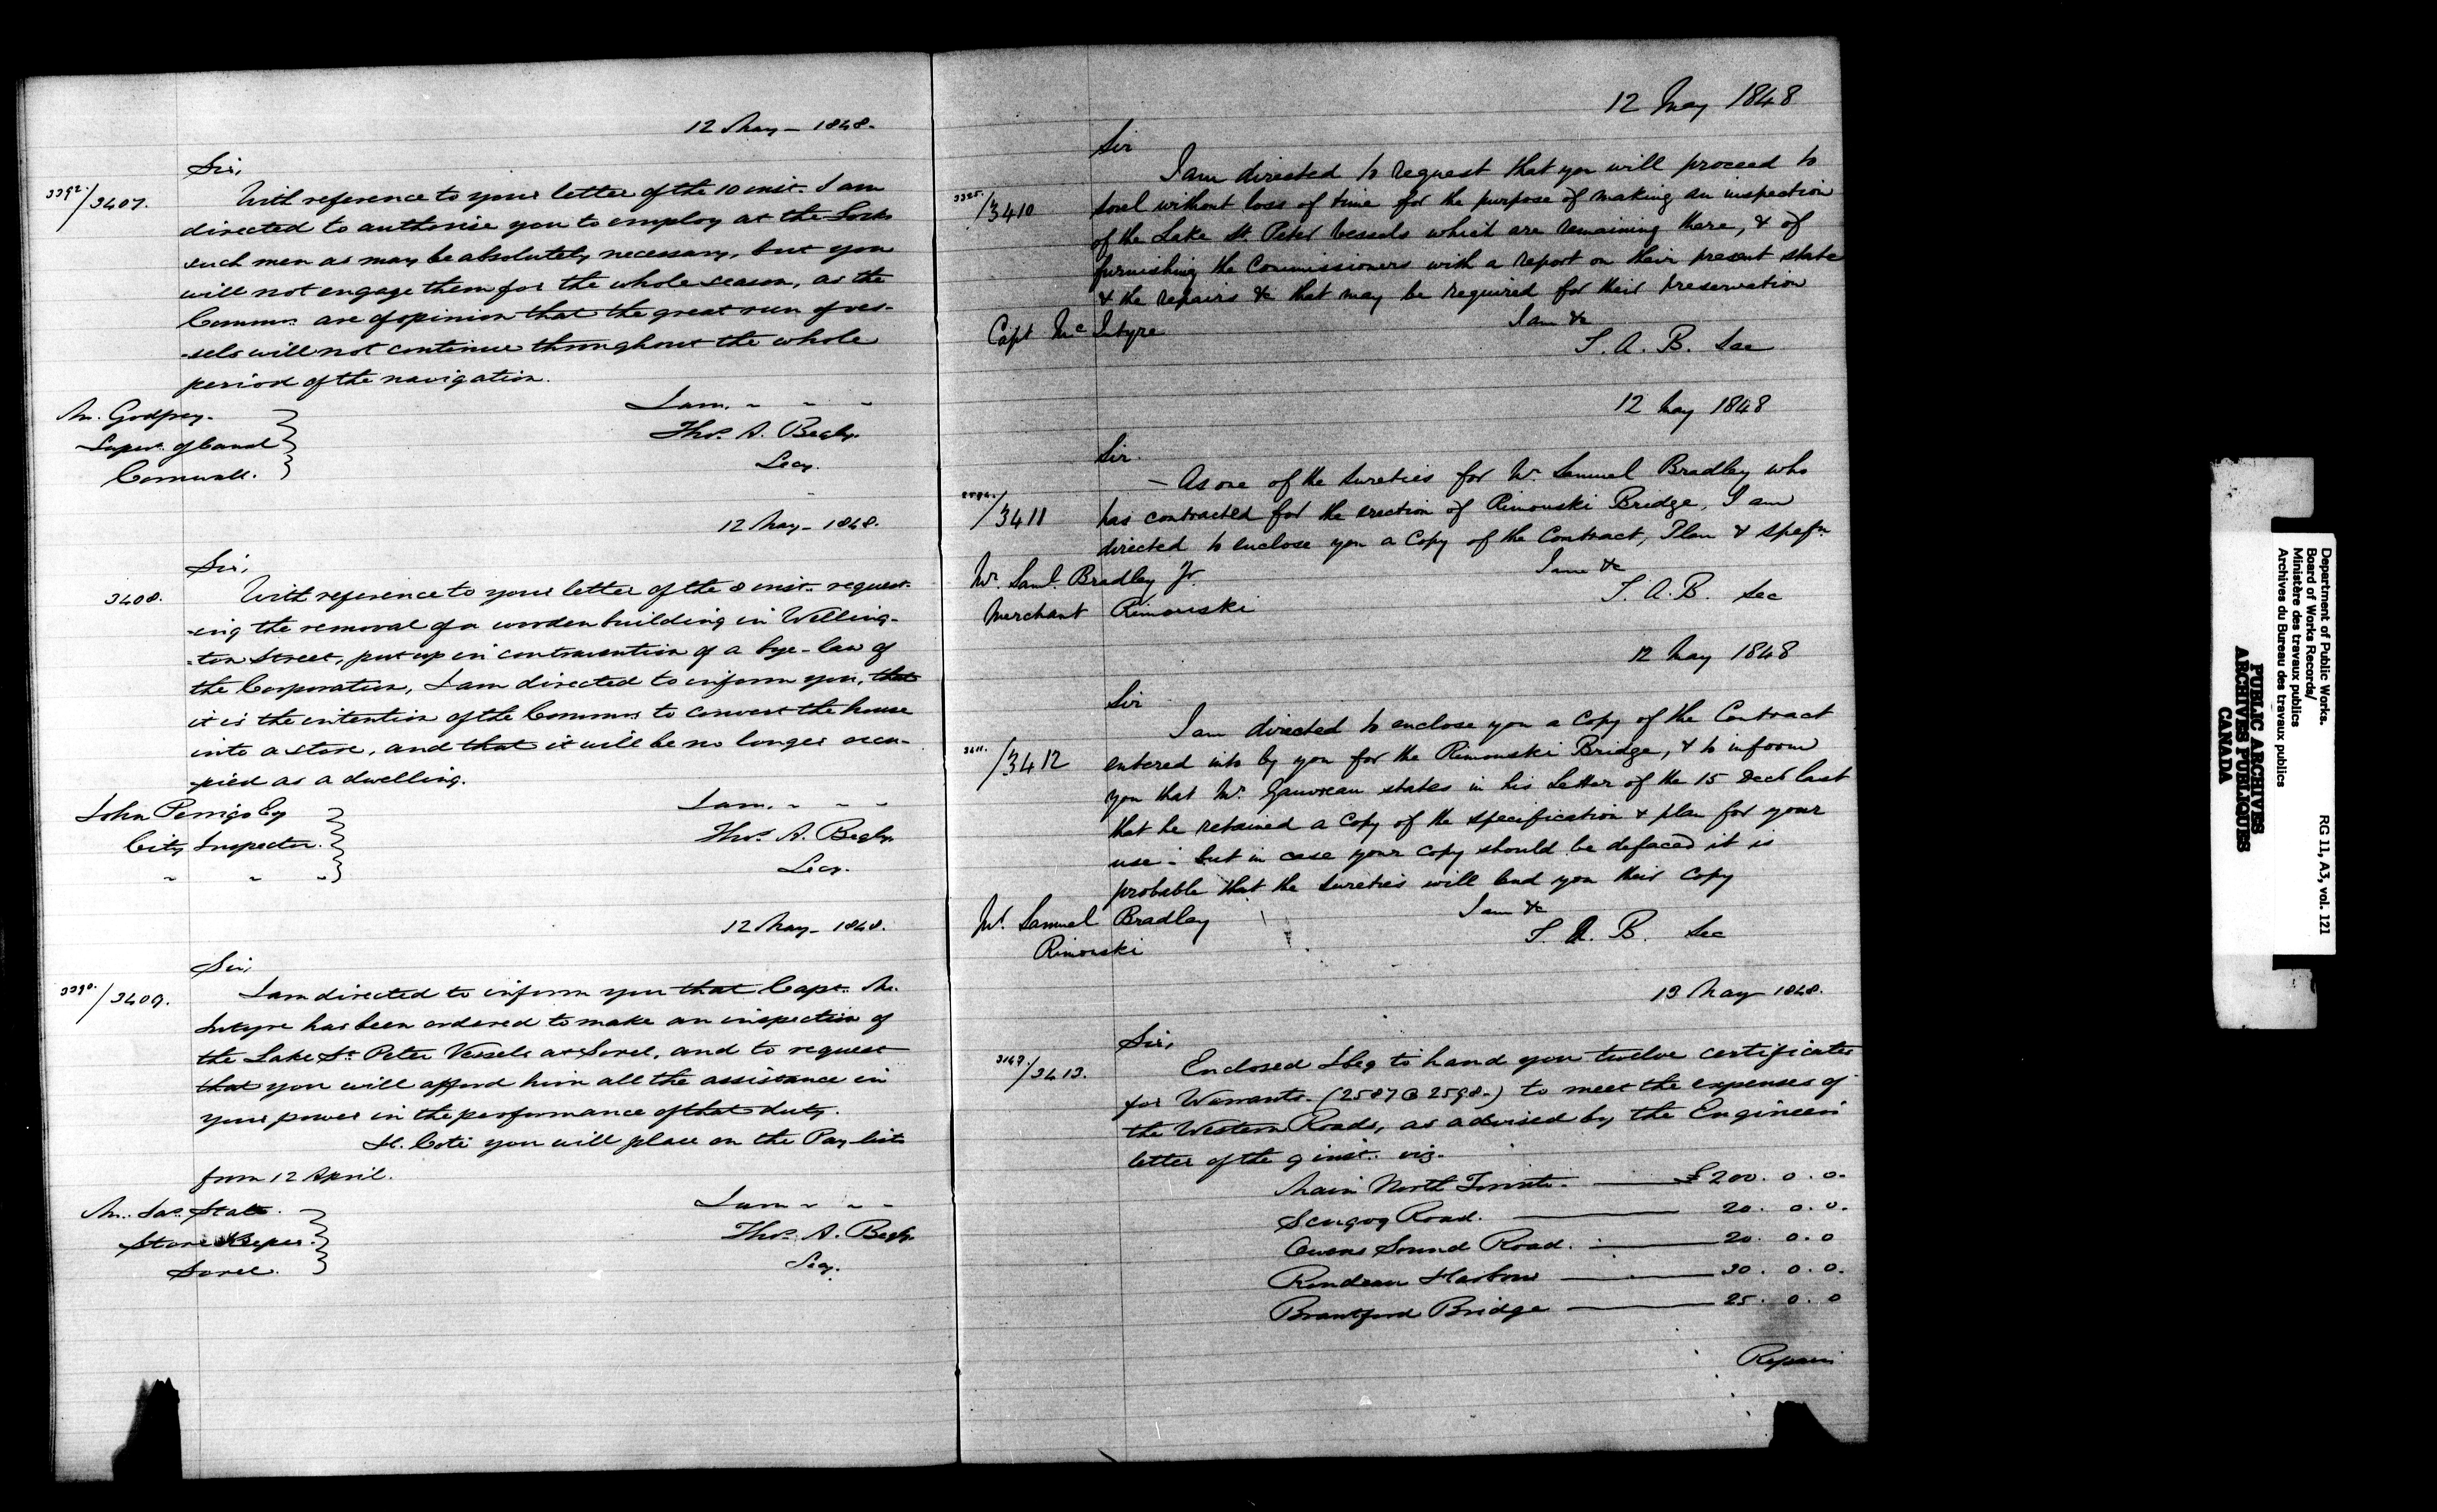 12 May - 1848.
Sir,
3392./3407.
With reference to your letter of the 10 inst. I am
directed to authorise you to employ at the Locks
such men as may be absolutely necessary, but you
will not engage them for the whole season, as the
Commrs. are of opinion that the great run of ves-
-sels will not continue throughout the whole
period of the navigation.
I am. " " "
Mr. Godfrey.
Thos. A. Begly.
Super. of Canal
Secy.
Cornwall.
12 May - 1848.
Sir,
3408.
With reference to your letter of the 8 inst. request-
-ing the removal of a wooden building in Welling-
-ton Street, put up in contravention of a bye-law of
the Corporation, I am directed to inform you, that
it is the intention of the Commrs to convert the house
into a store, and that it will be no longer occu-
-pied as a dwelling.
I am. " " "
John Perrigo Esq
Thos. A. Begly.
City Inspector.
Secy.
" " "
12 May - 1848.
Sir,
3390./3409.
I am directed to inform you that Capt. Mc.
Intyre has been ordered to make an inspection of
the Lake St. Peter Vessels at Sorel, and to request
that you will afford him all the assistance in
your power in the performance of that duty.
H. Coté you will place on the Pay lists
from 12 April.
I am " " "
Mr. Jas. Statt.
Thos. A. Begly.
Store Keeper.
Secy.
Sorel.
12 May 1848
Sir
I am directed to request that you will proceed to
/3410
Sorel without loss of time for the purpose of making an inspection
of the Lake St. Peter Vessels which are remaining there, & of
furnishing the Commissioners with a report on their present state
& the repairs &c that may be required for their preservation
I am &c
Capt McIntyre
T. A. B. Sec
12 May 1848
Sir.
- As one of the Sureties for Mr. Samuel Bradley who
/3411
has contracted for the erection of Rimouski Bridge, I am
directed to enclose you a Copy of the Contract, Plan & Spefn.
I am &c
Mr. Saml. Bradley Jr.
T. A. B. Sec
Merchant Rimouski
12 May 1848
Sir
I am directed to enclose you a Copy of the Contract
3411./3412
entered into by you for the Rimouski Bridge, & to inform
you that Mr. Gauvreau states in his Letter of the 15 Decr last
that he retained a Copy of the specification & plan for your
use - but in case your copy should be defaced it is
probable that the Sureties will lend you their Copy
I am &c
Mr. Samuel Bradley
T. A. B. Sec
Rimouski
13 May 1848.
Sir,
/3413.
Enclosed I beg to hand you twelve certificates
for Warrants. (2587 @ 2598.) to meet the expenses of
the Western Roads, as advised by the Engineers
letter of the 9 inst. viz.
Main North Toronto. £200. 0. 0.
Scugog Road. 20. 0. 0.
Owens Sound Road. 20. 0. 0
Rondeau Harbour 30. 0. 0.
Brantford Bridge 25. 0. 0
Repairs
Department of Public Works.
Board of Works Records/
Ministère des travaux publics
Archives du Bureau des travaux publics
RG 11, A3, vol. 121
PUBLIC ARCHIVES
ARCHIVES PUBLIQUES
CANADA